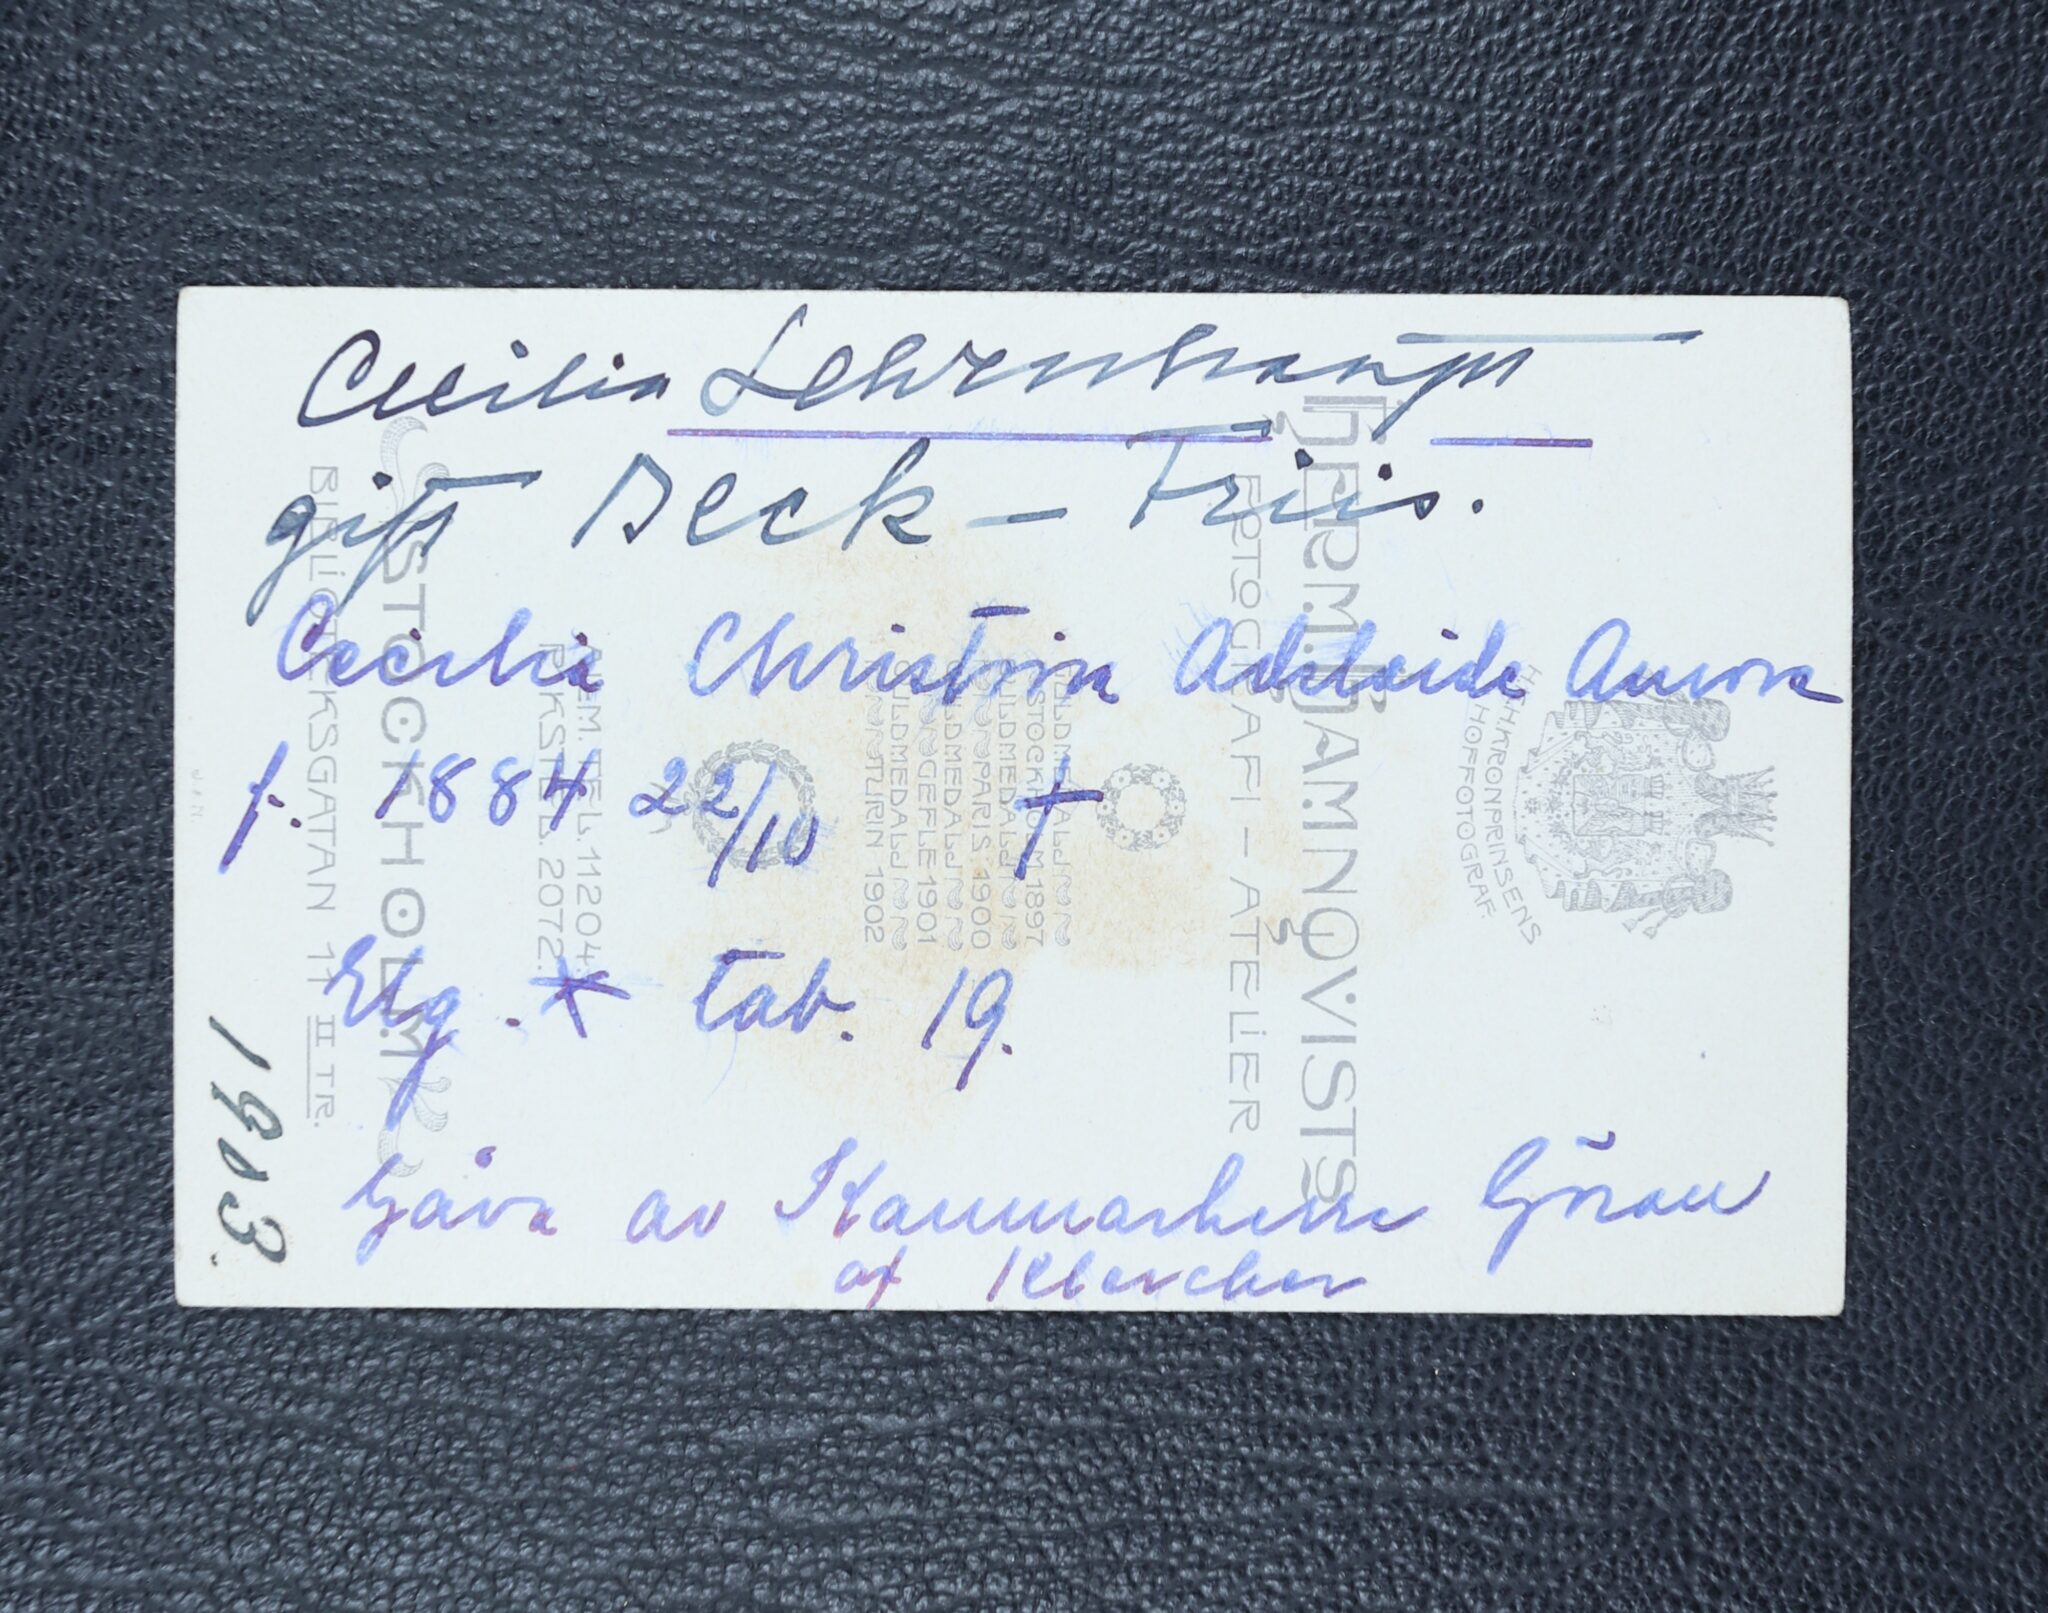 Cecilia Lewenhaupt
gift Beck-Friis.
Cecilia Christina Adelaide Aurora
f. 1884 22/10 †
Elg. * tab. 19.
Gåva av Kammarherre Göran
af Klercker
1903.
H.K.H. KRONPRINSENS
HOFFOTOGRAF.
HERRM. HAMNQVISTS
FOTOGRAFI-ATELIER
GULDMEDALJ
STOCKHOLM 1897
GULDMEDALJ
PARIS 1900
GULDMEDALJ
GEFLE 1901
GULDMEDALJ
TURIN 1902
ALLM. TEL. 11204.
RIKSTEL. 2072.
STOCKHOLM
BIBLIOTEKSGATAN 11 II TR.